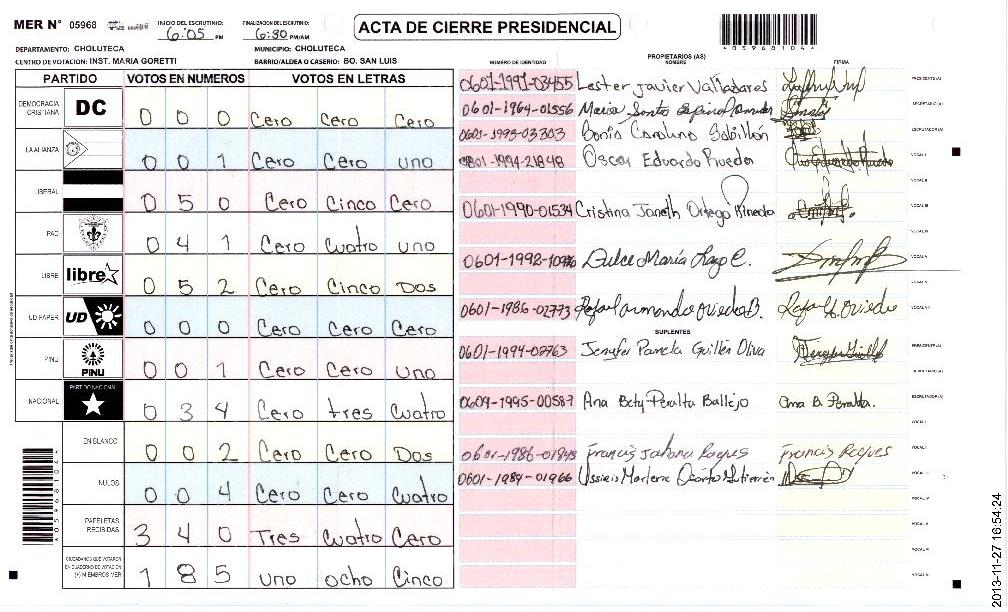 MER N° 05968
INICIO DEL ESCRUTINIO: 6:05 PM
FINALIZACION DEL ESCRUTINIO: 6:30 PM/AM
ACTA DE CIERRE PRESIDENCIAL
4059681044
DEPARTAMENTO: CHOLUTECA
MUNICIPIO: CHOLUTECA
CENTRO DE VOTACION: INST. MARIA GORETTI
BARRIO/ALDEA O CASERIO: BO. SAN LUIS
PARTIDO VOTOS EN NUMEROS VOTOS EN LETRAS
DEMOCRACIA CRISTIANA DC 0 0 0 Cero Cero Cero
LA ALIANZA 0 0 1 Cero Cero uno
LIBERAL 0 5 0 Cero Cinco Cero
PAC 0 4 1 Cero Cuatro uno
LIBRE libre 0 5 2 Cero Cinco Dos
UD FAPER UD 0 0 0 Cero Cero Cero
PINU PINU 0 0 1 Cero Cero uno
NACIONAL PARTIDO NACIONAL 0 3 4 Cero tres Cuatro
EN BLANCO 0 0 2 Cero Cero Dos
NULOS 0 0 4 Cero Cero Cuatro
PAPELETAS RECIBIDAS 3 4 0 Tres Cuatro Cero
CIUDADANOS QUE VOTARON EN CUADERNO DE VOTACION (+) MIEMBROS MER 1 8 5 uno ocho Cinco
NUMERO DE IDENTIDAD
PROPIETARIOS (AS)
NOMBRE
FIRMA
0601-1991-03455 Lester Javier Valladares PRESIDENTE(A)
0601-1964-01556 Maria Santos SECRETARIO(A)
0601-1993-03303 Bonia Carolina Sabillón ESCRUTADOR(A)
0801-1994-21848 Oscar Eduardo Pineda VOCAL I
VOCAL II
0601-1990-01534 Cristina Janeth Ortega Pineda VOCAL III
VOCAL IV
0601-1992-10976 Dulce María Lazo C. VOCAL V
VOCAL VI
0601-1986-02773 Rafael armando oviedo B. Rafael oviedo VOCAL VII
SUPLENTES
0601-1994-02763 Jenyfer Pamela Guillén Oliva PRESIDENTE(A)
SECRETARIO(A)
0609-1995-00587 Ana Bety Peralta Ballejo Ana B. Peralta. ESCRUTADOR(A)
VOCAL I
0601-1986-01848 Francis Johana Reyes Francis Reyes VOCAL II
0601-1984-01966 Marlene Gutierrez VOCAL III
VOCAL IV
VOCAL V
VOCAL VI
VOCAL VII
2013-11-27 16:54:24